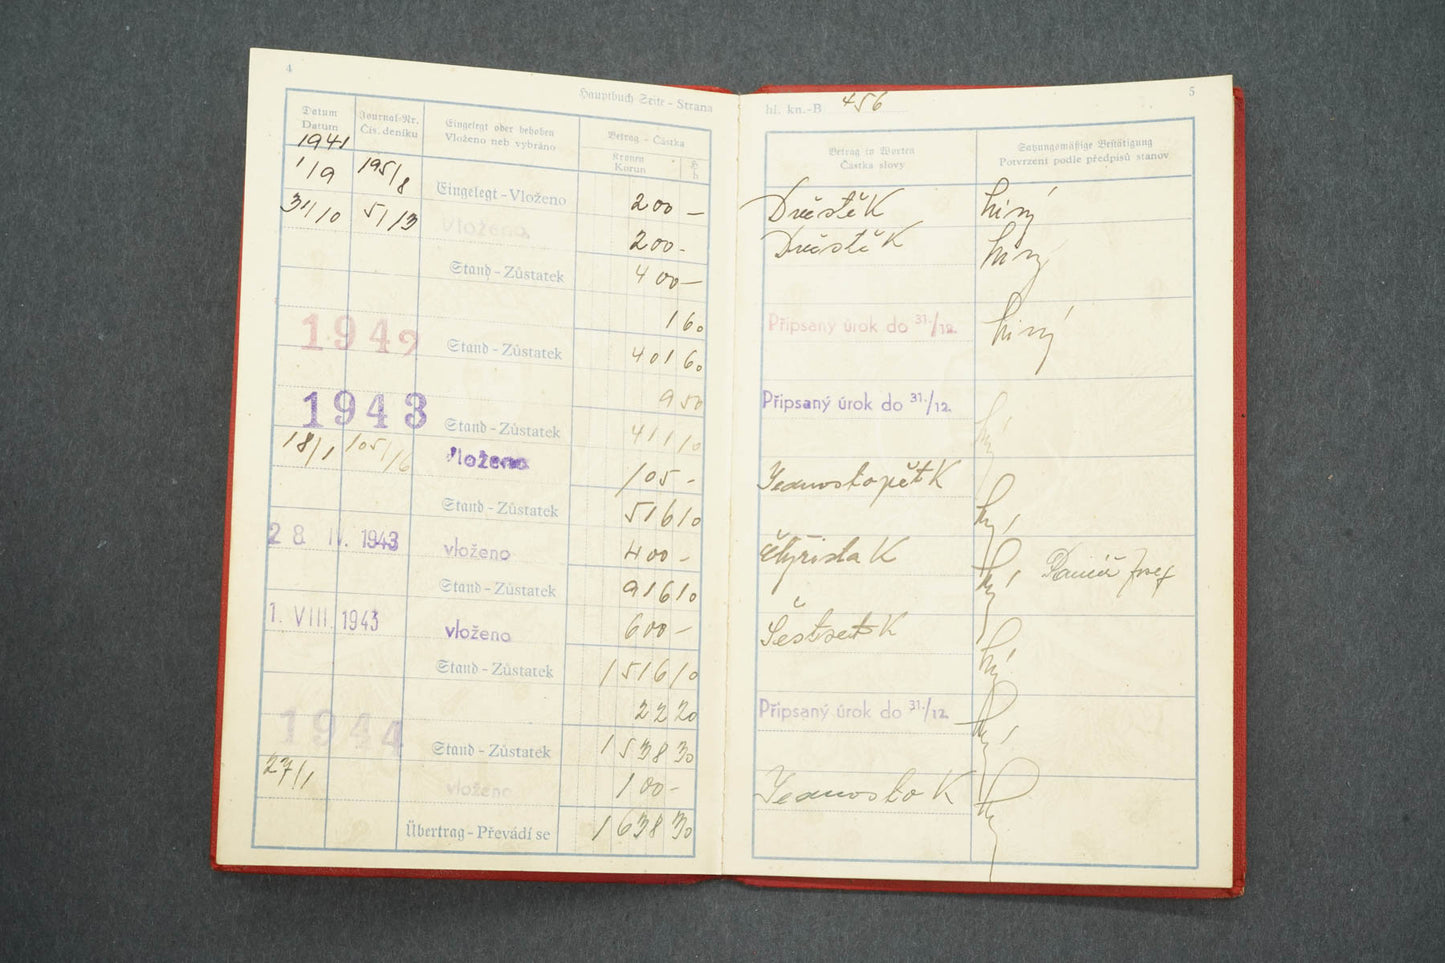 4
Hauptbuch Seite - Strana
Datum
Datum
Journal-Nr.
Čís. deníku
Eingelegt oder behoben
Vloženo neb vybráno
Betrag - Částka
Kronen
Korun
h
h
1941
1/9 195/8 Eingelegt - Vloženo 200 —
31/10 51/13 Vloženo 200 -
Stand - Zůstatek 400 —
1 60
1942 Stand - Zůstatek 401 60
9 50
1943 Stand - Zůstatek 411 10
18/1 105/16 Vloženo 105 -
Stand - Zůstatek 516 10
28. IV. 1943 vloženo 400 -
Stand - Zůstatek 916 10
1. VIII. 1943 vloženo 600 —
Stand - Zůstatek 1516 10
22 20
1944 Stand - Zůstatek 1538 30
27/1 vloženo 100 -
Übertrag - Převádí se 1638 30
hl. kn.-B 456
5
Betrag in Worten
Částka slovy
Satzungsmäßige Bestätigung
Potvrzení podle předpisů stanov
Dvěstě K
Dvěstě K
Připsaný úrok do 31./12.
Připsaný úrok do 31./12.
Jednostopět K
Čtyřista K
Šestset K
Připsaný úrok do 31./12.
Jednosto K